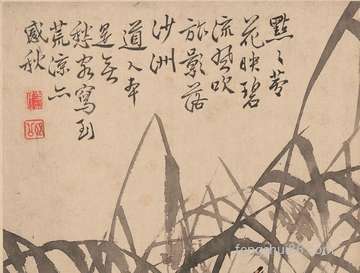 點點苔
花映碧
流風吹
旅影落
沙洲
道人本
是無
愁客寫到
荒涼亦
感秋
fengshui86.com